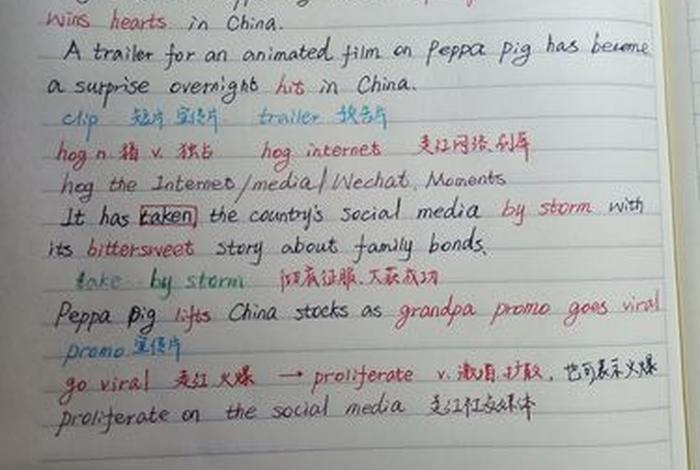 wins hearts in China.
A trailer for an animated film on Peppa pig has become
a surprise overnight hit in China.
clip 短片 宣传片 trailer 预告片
hog n. 猪 v. 独占 hog internet 走红网络、刷屏
hog the Internet/media/Wechat, Moments
It has taken the country's social media by storm with
its bittersweet story about family bonds.
take ... by storm 彻底征服、大获成功
Peppa pig lifts China stocks as grandpa promo goes viral
promo 宣传片
go viral 走红 火爆 → proliferate v. 激增 扩散, 也可表示火爆
proliferate on the social media 走红社交媒体